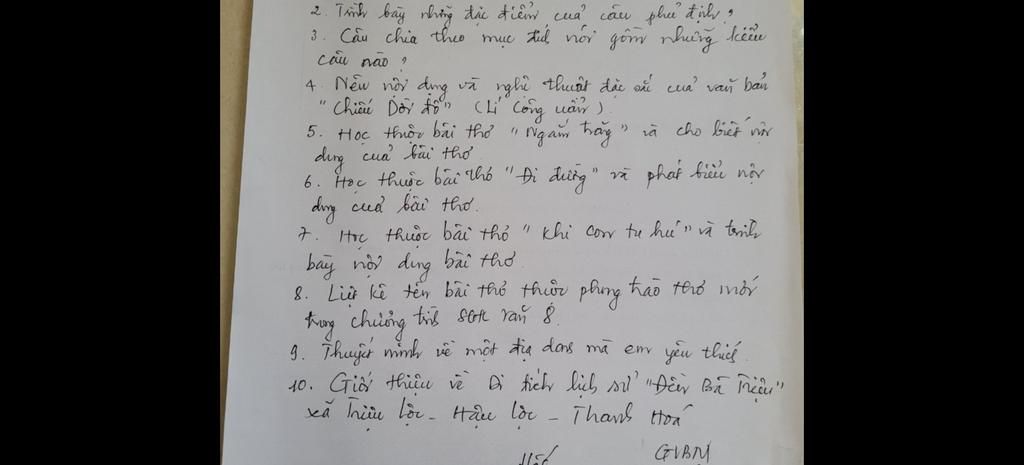 2. Trình bày những đặc điểm của câu phủ định?
3. Câu chia theo mục đích nói gồm những kiểu
câu nào?
4. Nêu nội dung và nghệ thuật đặc sắc của văn bản
"Chiếu Dời đô" (Lí Công Uẩn).
5. Học thuộc bài thơ "Ngắm trăng" và cho biết nội
dung của bài thơ.
6. Học thuộc bài thơ "Đi đường" và phát biểu nội
dung của bài thơ.
7. Học thuộc bài thơ "Khi con tu hú" và trình
bày nội dung bài thơ
8. Liệt kê tên bài thơ thuộc phong trào thơ mới
trong chương trình SGK văn 8.
9. Thuyết minh về một địa danh mà em yêu thích.
10. Giới thiệu về Di tích lịch sử "Đền Bà Triệu"
xã Triệu Lộc - Hậu Lộc - Thanh Hoá
Hết
GVBM